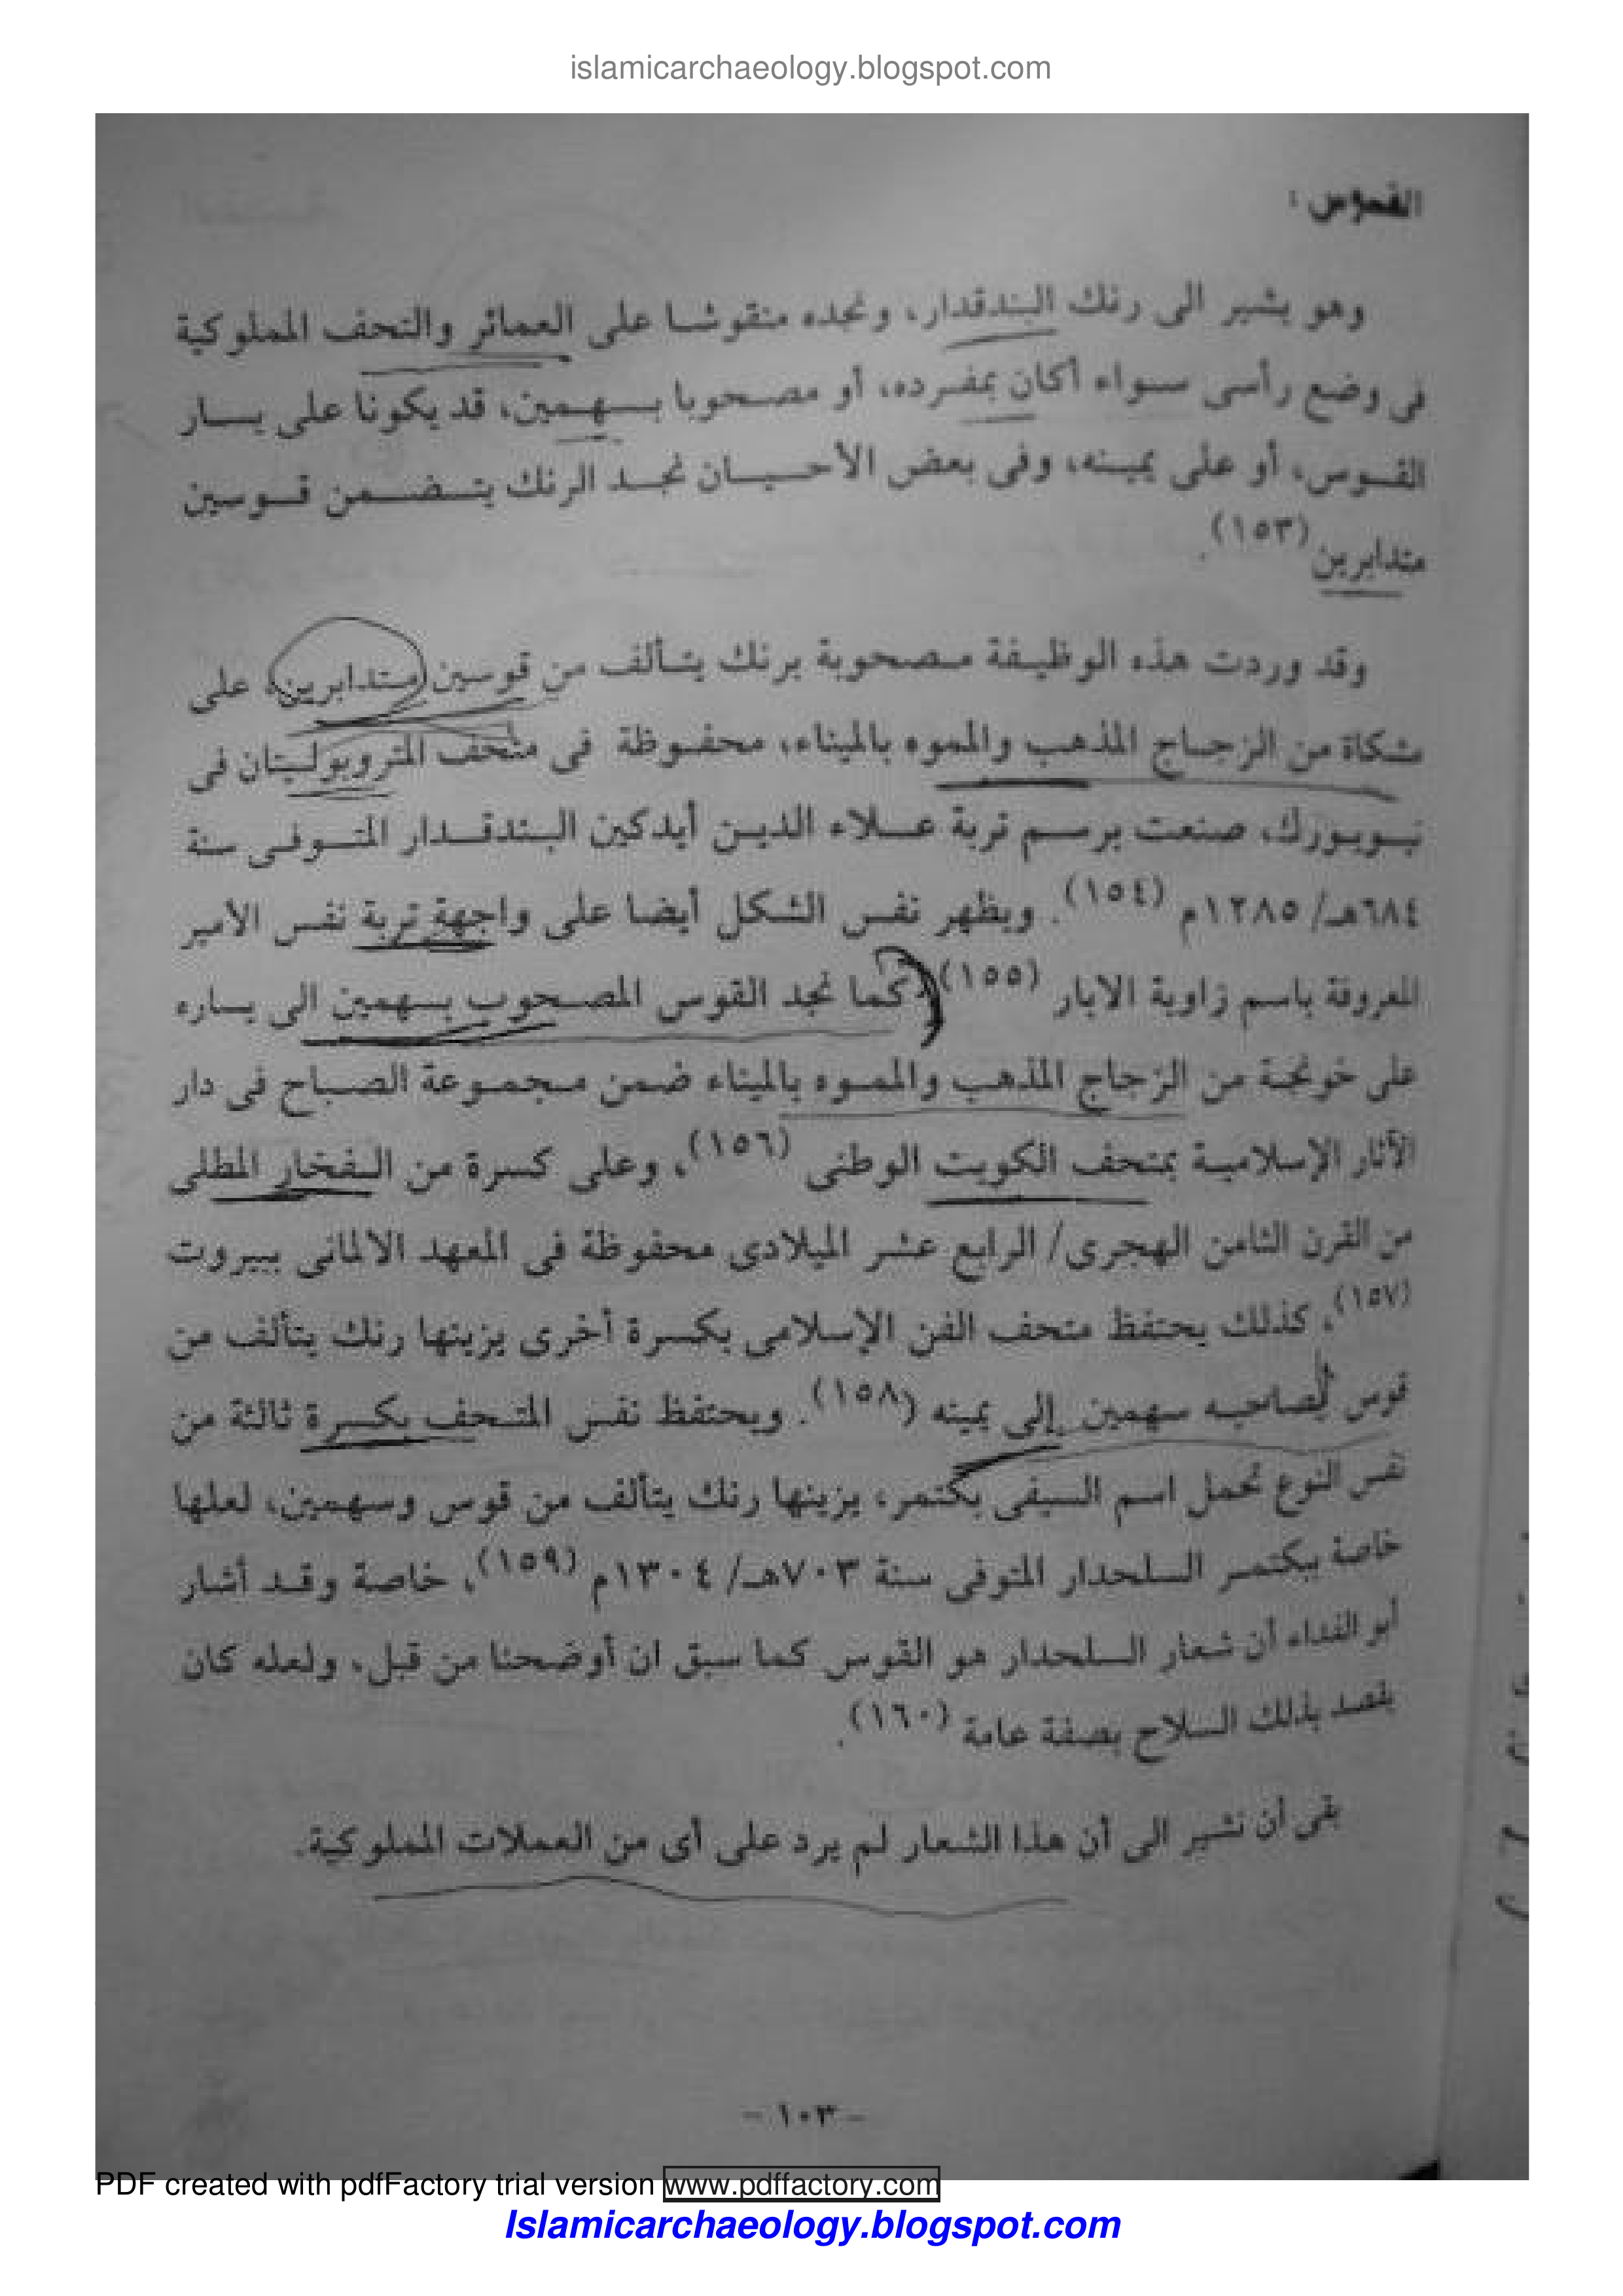 islamicarchaeology.blogspot.com
القوس :
وهو يشير الى رنك البندقدار، ونجده منقوشا على العمائر والتحف المملوكية
فى وضع رأسى سواء أكان بمفرده، أو مصحوبا بسهمين، قد يكونا على يسار
القوس، أو على يمينه، وفى بعض الأحيان نجد الرنك يتضمن قوسين
متدابرين (١٥٣).
وقد وردت هذه الوظيفة مصحوبة برنك يتألف من قوسين متدابرين، على
مشكاة من الزجاج المذهب والمموه بالميناء، محفوظة فى متحف المتروبوليتان فى
نيويورك، صنعت برسم تربة علاء الدين أيدكين البندقدار المتوفى سنة
٦٨٤هـ/ ١٢٨٥م (١٥٤). ويظهر نفس الشكل أيضا على واجهة تربة نفس الامير
المعروفة باسم زاوية الابار (١٥٥) كما نجد القوس المصحوب بسهمين الى يساره
على خونجة من الزجاج المذهب والمموه بالميناء ضمن مجموعة الصباح فى دار
الآثار الإسلامية بمتحف الكويت الوطنى (١٥٦)، وعلى كسرة من الفخار المطلى
من القرن الثامن الهجرى/ الرابع عشر الميلادى محفوظة فى المعهد الالمانى ببيروت
(١٥٧)، كذلك يحتفظ متحف الفن الإسلامى بكسرة أخرى يزينها رنك يتألف من
قوس لصاحبه سهمين إلى يمينه (١٥٨). ويحتفظ نفس المتحف بكسرة ثالثة من
نفس النوع تحمل اسم السيفى بكتمر، يزينها رنك يتألف من قوس وسهمين، لعلها
خاصة ببكتمر السلحدار المتوفى سنة ٧٠٣هـ/ ١٣٠٤م (١٥٩)، خاصة وقد أشار
أبو الفداء أن شعار السلحدار هو القوس كما سبق ان أوضحنا من قبل، ولعله كان
يقصد بذلك السلاح بصفة عامة (١٦٠).
بقى أن نشير الى أن هذا الشعار لم يرد على أى من العملات المملوكية.
– ١٠٣ –
PDF created with pdfFactory trial version www.pdffactory.com
Islamicarchaeology.blogspot.com